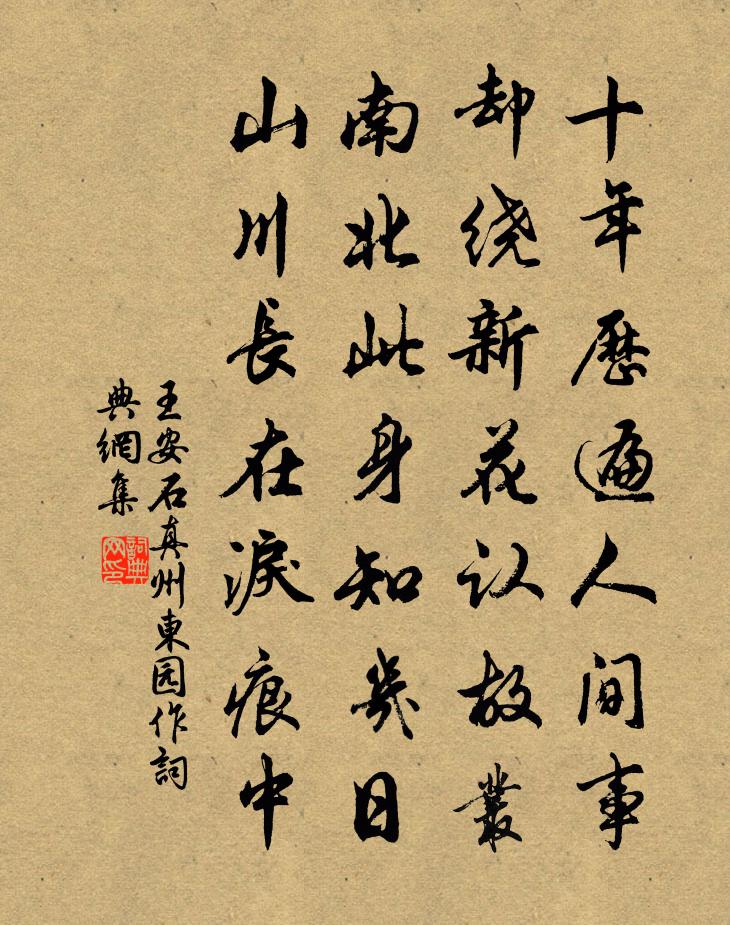 十年歷遍人间事
却绕新花认故叢
南北此身知幾日
山川長在淚痕中
王安石真州東园作詞
典網集
詞典
网印